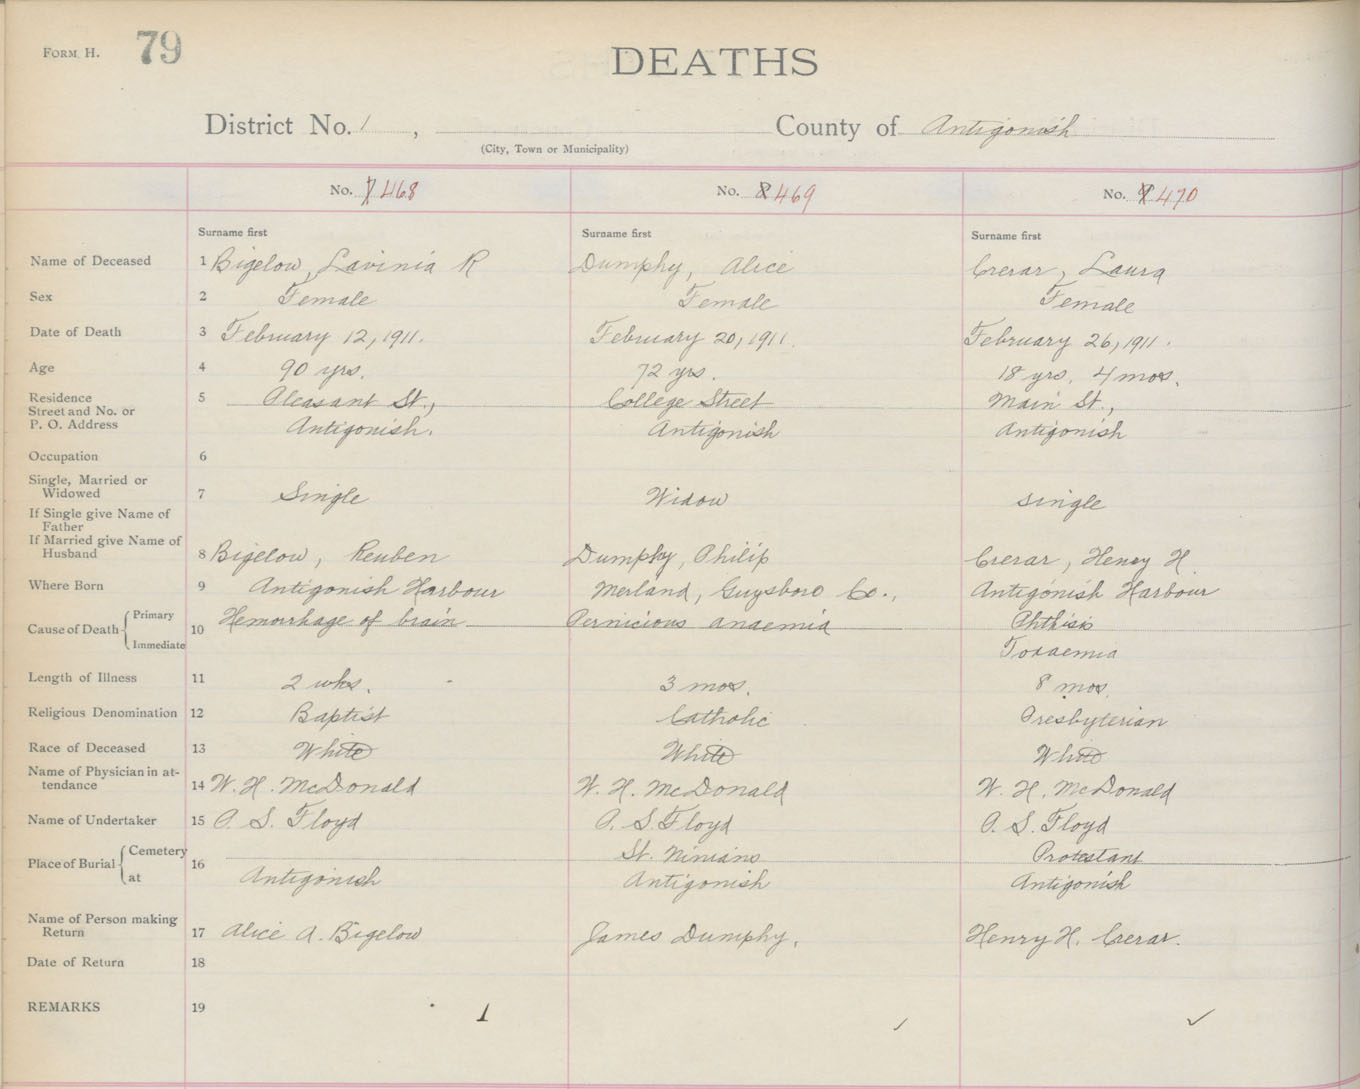 FORM H. 79
DEATHS
District No. 1 , County of Antigonish
(City, Town or Municipality)
No. 7 468 No. 8 469 No. 9 470
Surname first Surname first Surname first
Name of Deceased 1 Bigelow, Lavinia R Dumphy, Alice Crerar, Laura
Sex 2 Female Female Female
Date of Death 3 February 12, 1911. February 20, 1911. February 26, 1911.
Age 4 90 yrs. 72 yrs. 18 yrs. 4 mos.
Residence 5 Pleasant St., College Street Main St.,
Street and No. or
P. O. Address Antigonish. Antigonish Antigonish
Occupation 6
Single, Married or
Widowed 7 Single Widow Single
If Single give Name of
Father
If Married give Name of
Husband 8 Bigelow, Reuben Dumphy, Philip Crerar, Henry H.
Where Born 9 Antigonish Harbour Merland, Guysboro Co., Antigonish Harbour
Cause of Death Primary 10 Hemorrhage of brain Pernicious anaemia Phthisis
Immediate Toxaemia
Length of Illness 11 2 wks. 3 mos. 8 mos.
Religious Denomination 12 Baptist Catholic Presbyterian
Race of Deceased 13 White White White
Name of Physician in at-
tendance 14 W. H. McDonald W. H. McDonald W. H. McDonald
Name of Undertaker 15 P. S. Floyd P. S. Floyd P. S. Floyd
Place of Burial Cemetery 16 St. Ninians Protestant
at Antigonish Antigonish Antigonish
Name of Person making
Return 17 Alice A. Bigelow James Dumphy. Henry H. Crerar.
Date of Return 18
REMARKS 19 1